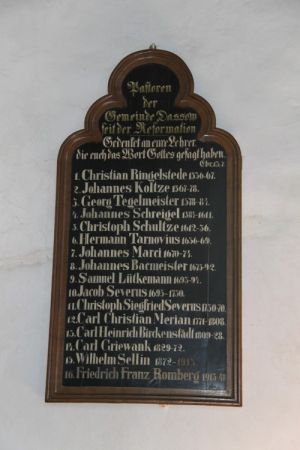 Pastoren
der
Gemeinde Dassow
seit der Reformation
Gedenket an eure Lehrer,
die euch das Wort Gottes gesagt haben.
Ebr. 13.7.
1. Christian Ringelstede 1556-67.
2. Johannes Koltze 1567-78.
3. Georg Tegelmeister 1578-84.
4. Johannes Schreigel 1585-1611.
5. Christoph Schultze 1612-56.
6. Hermann Tarnovius 1656-69.
7. Johannes Marci 1670-74.
8. Johannes Bacmeister 1675-92.
9. Samuel Lütkemann 1693-94.
10. Jacob Severus 1695-1750.
11. Christoph Siegfried Severus 1750-70.
12. Carl Christian Merian 1771-1808.
13. Carl Heinrich Birckenstädt 1809-28.
14. Carl Griewank 1829-72.
15. Wilhelm Sellin 1872-1913.
16. Friedrich Franz Romberg 1913-41